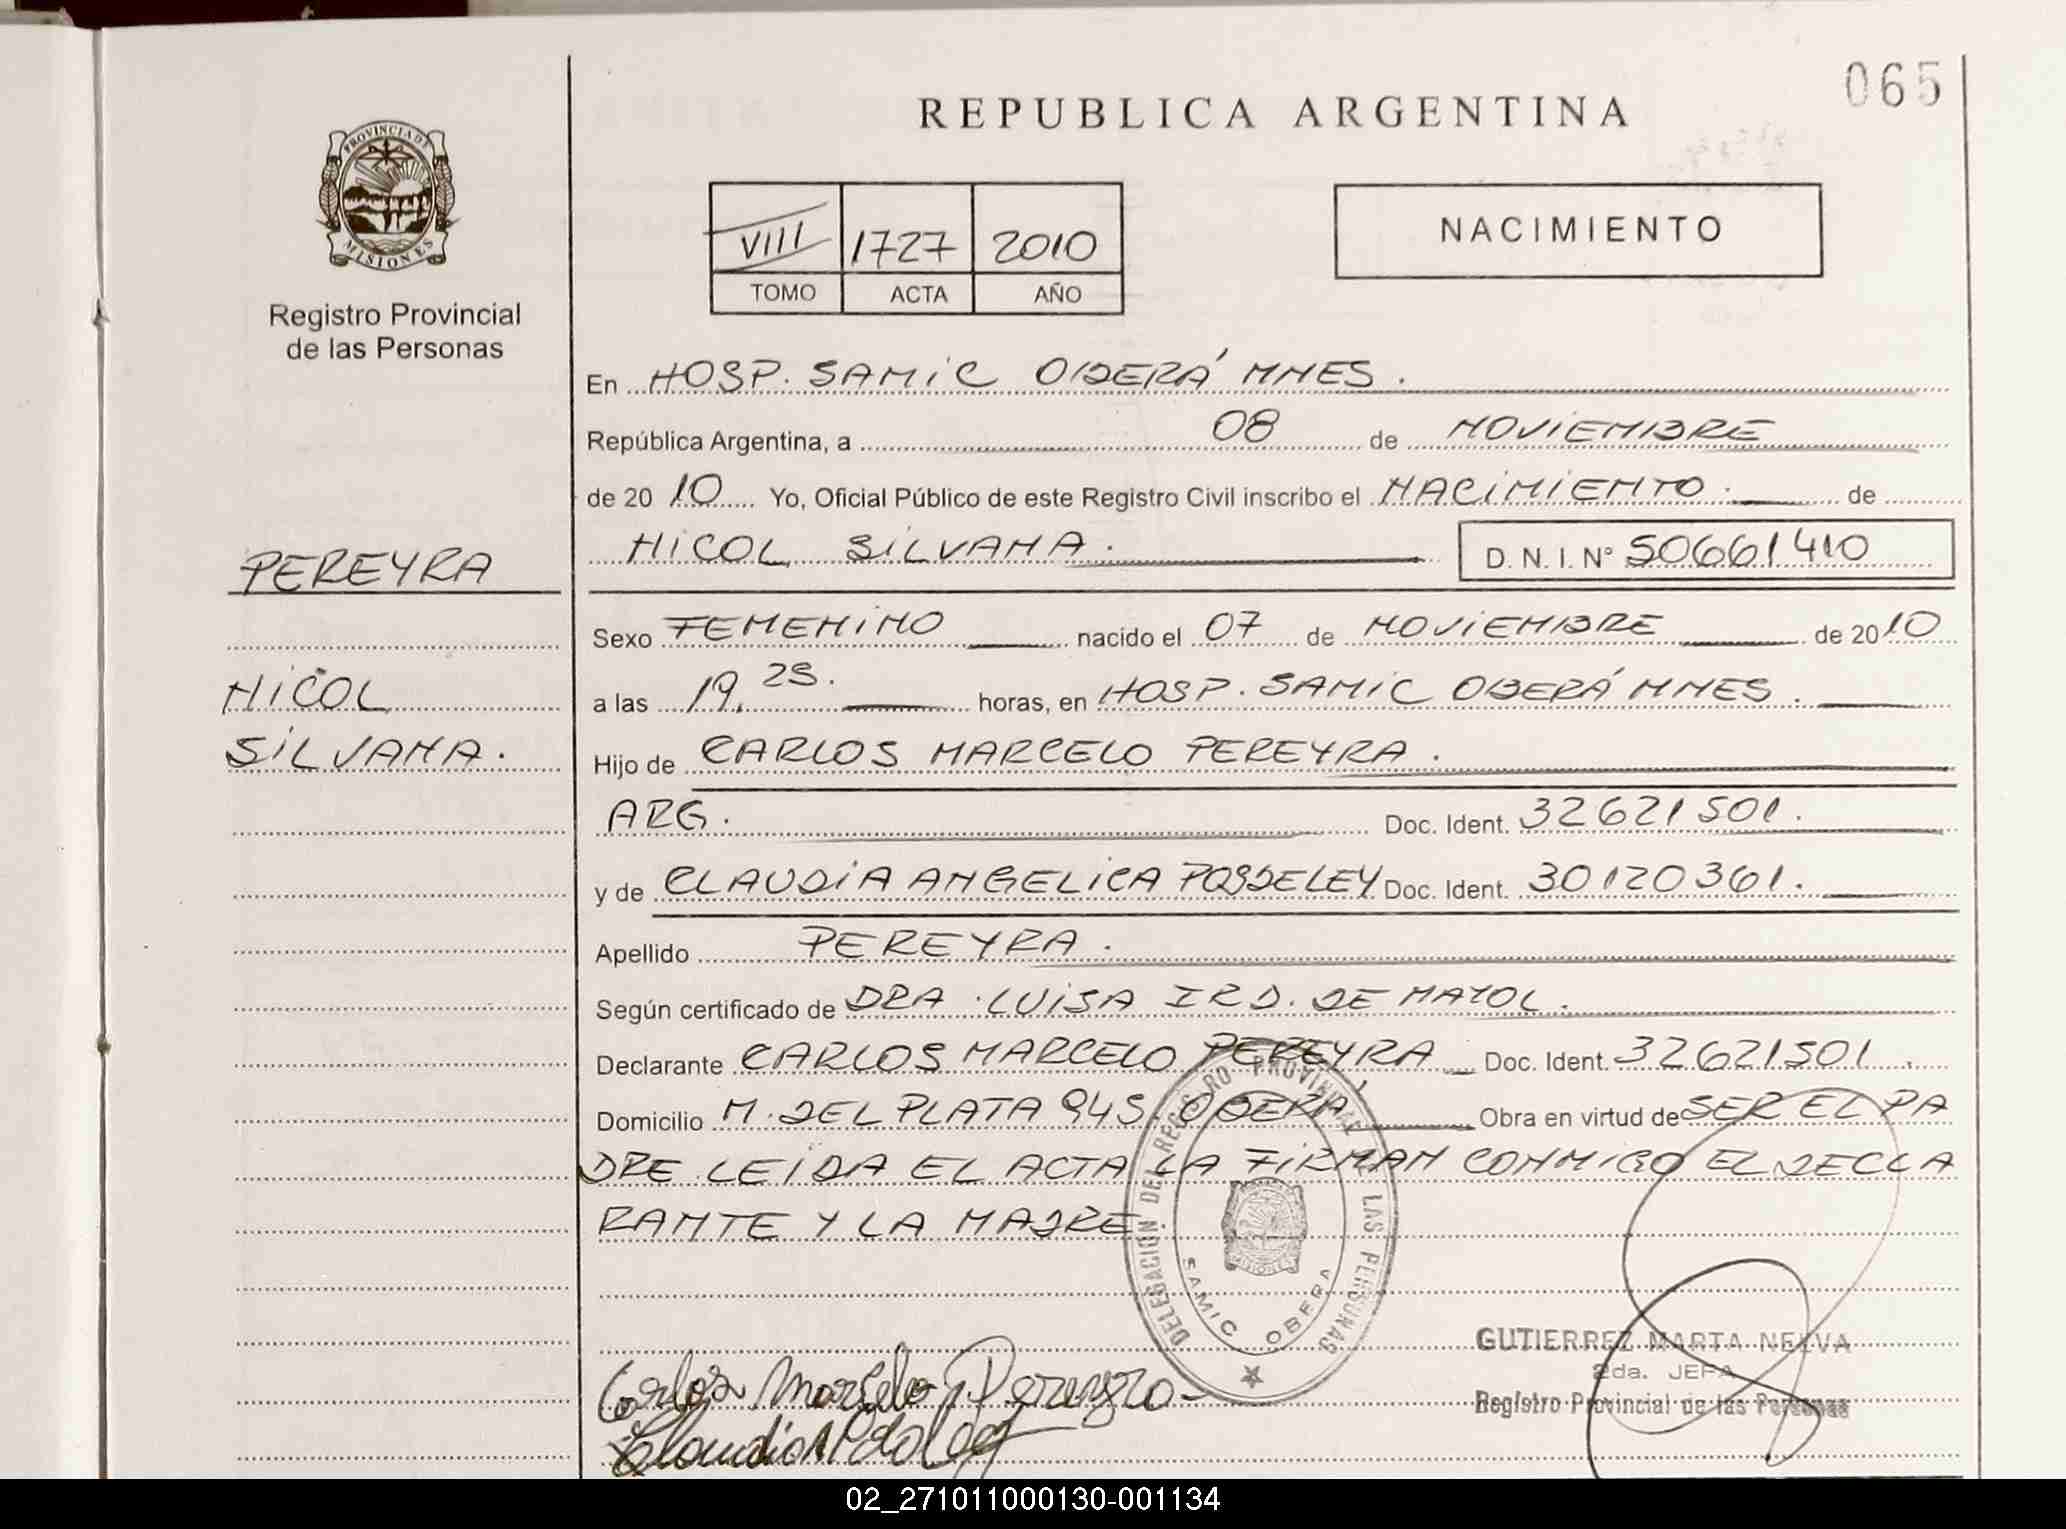 065
REPUBLICA ARGENTINA
PROVINCIA DE
MISIONES
Registro Provincial
de las Personas
VIII 1727 2010
TOMO ACTA AÑO
NACIMIENTO
En HOSP. SAMIC OBERÁ MNES.
República Argentina, a 08 de NOVIEMBRE
de 2010 Yo, Oficial Público de este Registro Civil inscribo el NACIMIENTO. de
NICOL SILVANA. D. N. I. Nº 50661410
PEREYRA
NICOL
SILVANA.
Sexo FEMENINO nacido el 07 de NOVIEMBRE de 2010
a las 19,25. horas, en HOSP. SAMIC OBERÁ MNES.
Hijo de CARLOS MARCELO PEREYRA.
ARG. Doc. Ident. 32621501.
y de CLAUDIA ANGELICA Doc. Ident. 30120361.
Apellido PEREYRA.
Según certificado de DRA. LUISA IRD. DE MAYOL.
Declarante CARLOS MARCELO PEREYRA Doc. Ident. 32621501.
Domicilio M. DEL PLATA 945. OBERÁ, Obra en virtud de SER EL PA
DRE LEIDA EL ACTA LA FIRMAN CONMIGO EL DECLA
RANTE Y LA MADRE.
DELEGACION DEL REGISTRO PROVINCIAL DE LAS PERSONAS
MISIONES
SAMIC OBERA
Carlos Marcelo Pereyra
Claudia A
GUTIERREZ MARTA NELVA
2da. JEFA
Registro Provincial de las Personas
02_271011000130-001134